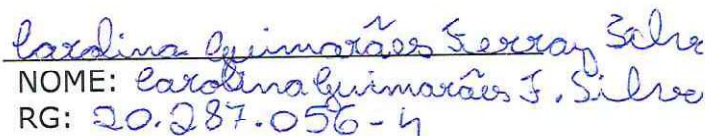 Carolina Guimarães Ferraz Silva
NOME: Carolina Guimarães F. Silva
RG: 20.287.056-4